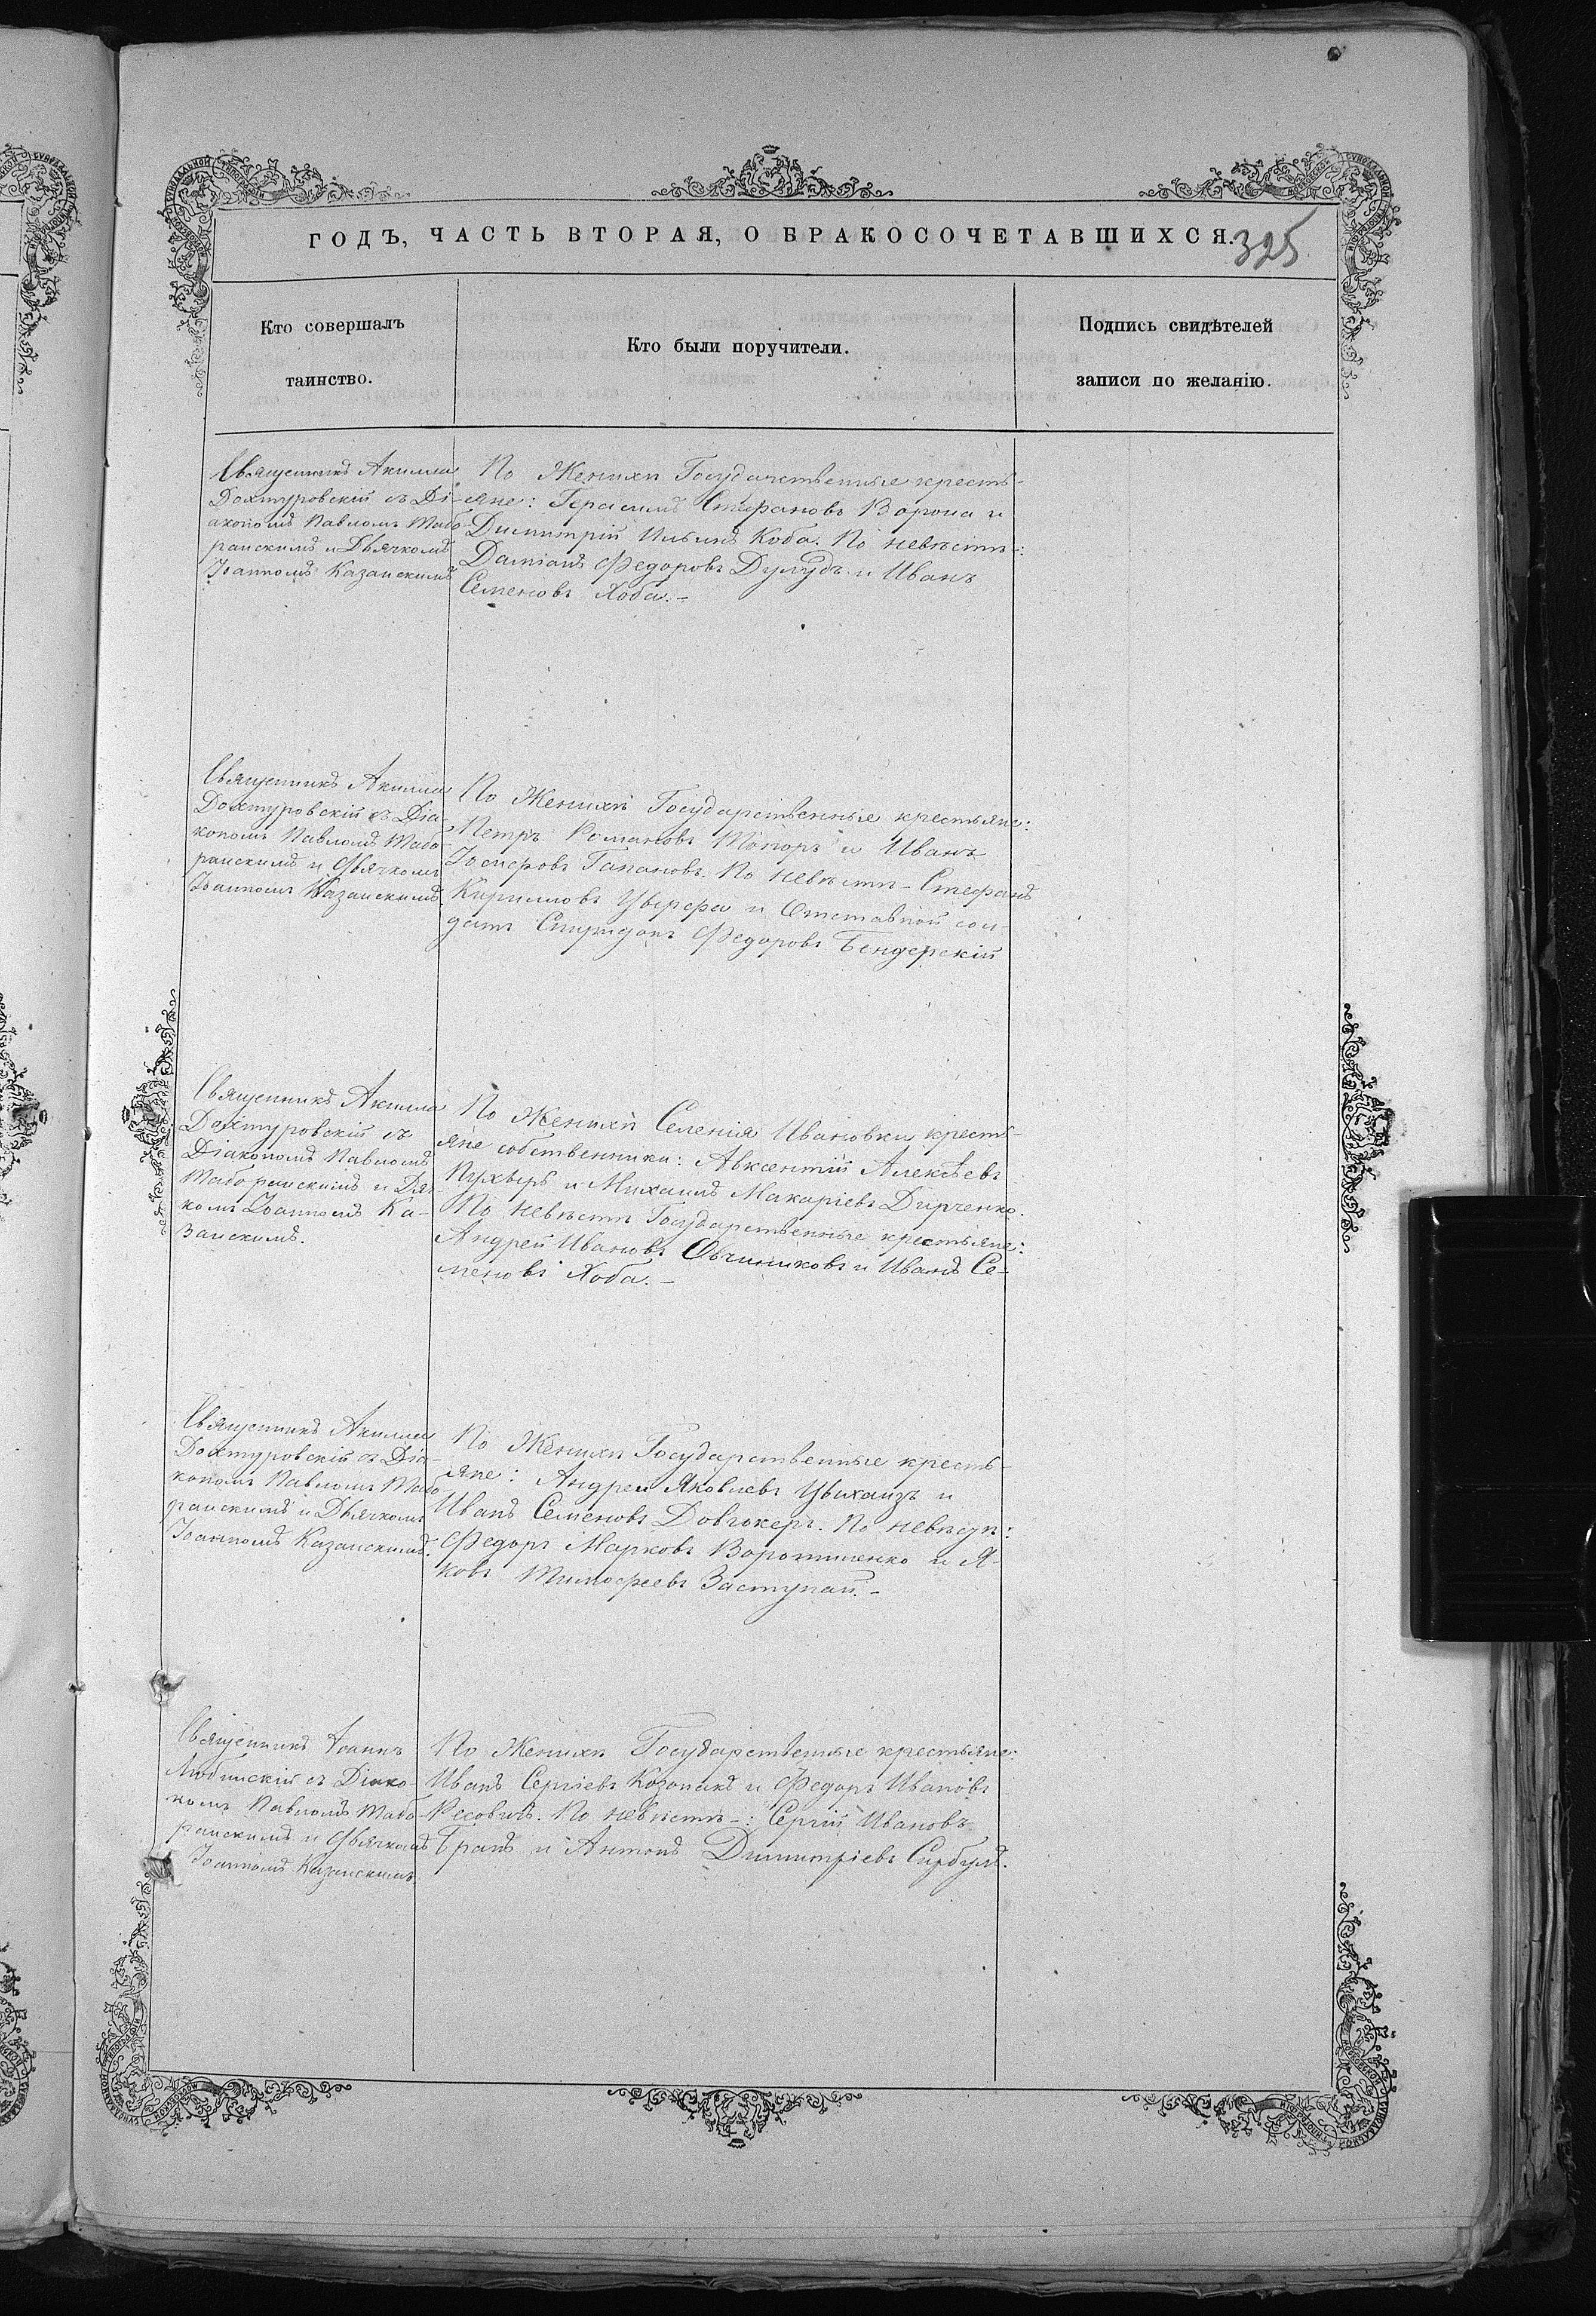 ГОДЪ, ЧАСТЬ ВТОРАЯ, О БРАКОСОЧЕТАВШИХСЯ.
325
Кто совершалъ
таинство.
Кто были поручители.
Подпись свидѣтелей
записи по желанію.
Священникъ Акила
Дохтуровскій съ Ді-
акономъ Павломъ Табо
ранскимъ и Дьячкомъ
Іоанномъ Казанскимъ
По Женихѣ Государственные кресть-
яне: Герасимъ Стефановъ Ворона и
Димитрій Ильинъ Коба. По невѣстѣ:
Даміанъ Федоровъ Дулубъ и Иванъ
Семеновъ Хоба.-
Священникъ Акила
Дохтуровскій съ Діа-
кономъ Павломъ Табо-
ранскимъ и Дьячкомъ
Іоанномъ Казанскимъ
По Женихѣ Государственные крестьяне:
Петръ Романовъ Топоръ и Иванъ
Іосифовъ Гапановъ. По невѣстѣ - Стефанъ
Кирилловъ и Отставной сол-
датъ Спиридонъ Федоровъ Бендерскій
Священникъ Акила
Дохтуровскій съ
Діакономъ Павломъ
Таборанскимъ и Дья-
комъ Іоанномъ Ка-
занскимъ.
По Женихѣ Селенія Ивановки кресть-
яне собственники: Авксентій Алексѣевъ
Пухыръ и Михаилъ Макаріевъ Дирченко.
По невѣстѣ Государственные крестьяне:
Андрей Ивановъ Овчиниковъ и Иванъ Се-
меновъ Хоба.-
Священникъ Акила
Дохтуровскій съ Діа-
кономъ Павломъ Табо
ранскимъ и Дьячкомъ
Іоанномъ Казанскимъ.
По Женихѣ Государственные кресть-
яне: Андрей Яковлевъ и
Иванъ Семеновъ Довгокеръ. По невѣстѣ:
Федоръ Марковъ и Я-
ковъ Тимофеевъ Заступай.-
Священникъ Іоаннъ
Любинскій съ Діако-
номъ Павломъ Табо-
ранскимъ и Дьячкомъ
Іоанномъ Казанскимъ.
По Женихѣ Государственные крестьяне:
Иванъ Сергіевъ Козопакъ и Федоръ Ивановъ
Ресовичъ. По невѣстѣ-: Сергій Ивановъ
Бранъ и Антонъ Димитріевъ Сарбулъ.